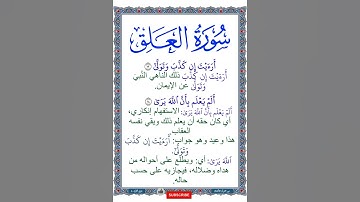 سُورَةُ الْعَلَقِ
أَرَءَيْتَ إِن كَذَّبَ وَتَوَلَّىٰٓ
أَرَءَيْتَ إِن كَذَّبَ ذلك الناهي النَّبي
وَتَوَلَّىٰ عن الإيمان.
أَلَمْ يَعْلَم بِأَنَّ ٱللَّهَ يَرَىٰ
أَلَمْ يَعْلَم بِأَنَّ ٱللَّهَ يَرَىٰ: الاستفهام إنكاري،
أي كان حقه أن يعلم ذلك ويقي نفسه
العقاب
هذا وعيد وهو جواب: أَرَءَيْتَ إِن كَذَّبَ
وَتَوَلَّىٰٓ.
ٱللَّهَ يَرَىٰ: أي: ويطلع على أحواله من
هداه وضلاله، فيجازيه على حسب
حاله.
SUBSCRIBE